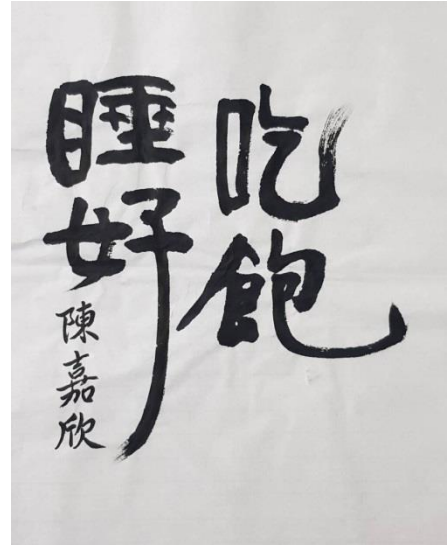 吃飽
睡好
陳嘉欣